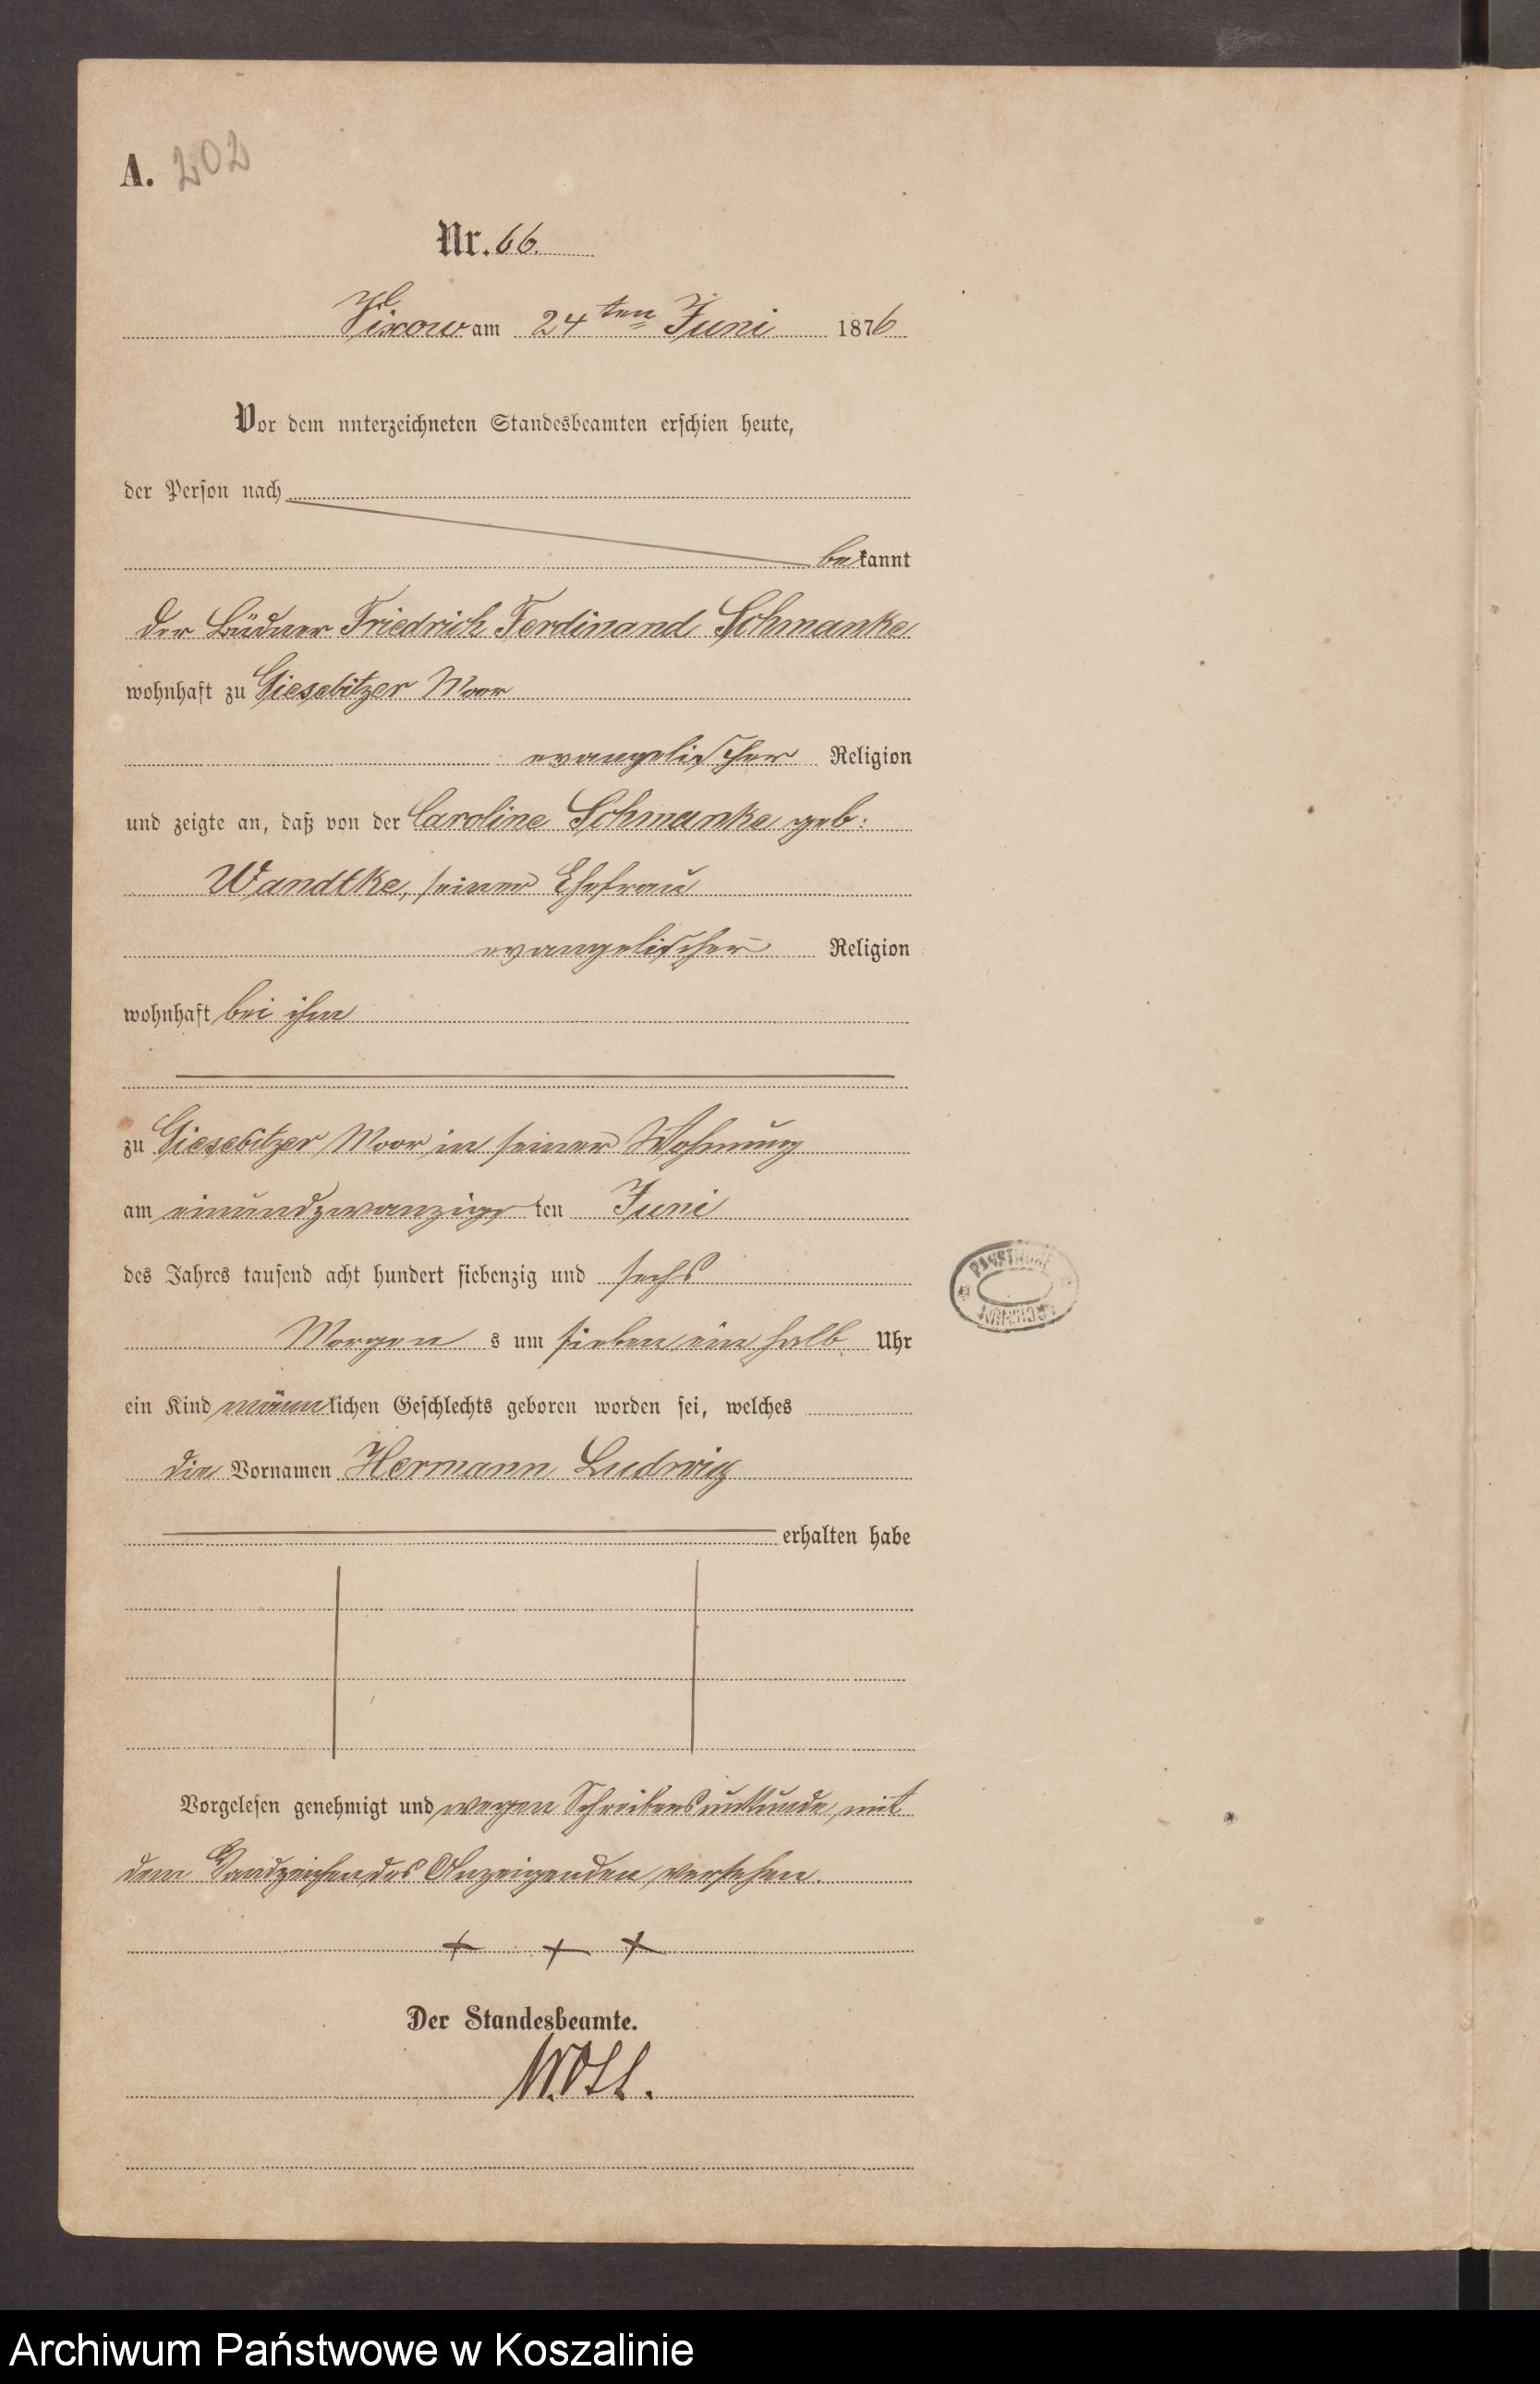 A. 202
Nr. 66.
Vixow am 24ten Juni 1876
Vor dem unterzeichneten Standesbeamten erschien heute,
der Person nach
bekannt
der Büdner Friedrich Ferdinand Schmanke
wohnhaft zu Giesebitzer Moor
evangelischer Religion
und zeigte an, daß von der Caroline Schmanke geb.
Wandtke, seiner Ehefrau
evangelischer Religion
wohnhaft bei ihm
zu Giesebitzer Moor in seiner Wohnung
am einundzwanzigsten Juni
des Jahres tausend acht hundert siebenzig und sechs
Morgens um sieben ein halb Uhr
ein Kind männlichen Geschlechts geboren worden sei, welches
die Vornamen Hermann Ludwig
erhalten habe
Vorgelesen genehmigt und wegen Schreibensunkunde mit
dem Handzeichen des Anzeigenden versehen.
+ + +
Der Standesbeamte.
Archiwum Państwowe w Koszalinie